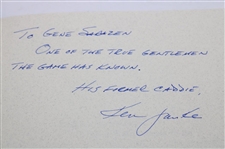 To Gene Sarazen
One of the true gentlemen
the game has known.
His former caddie,
Ken Janke